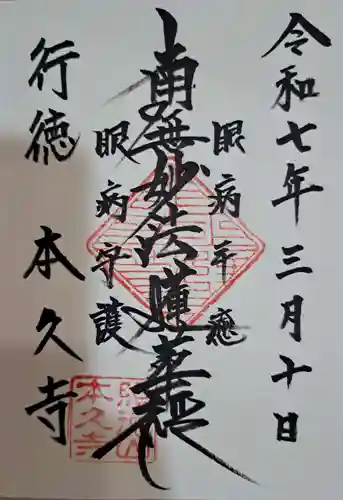 令和七年三月十日
眼病平癒
南無妙法蓮華経
眼病守護
行徳 本久寺
本久寺